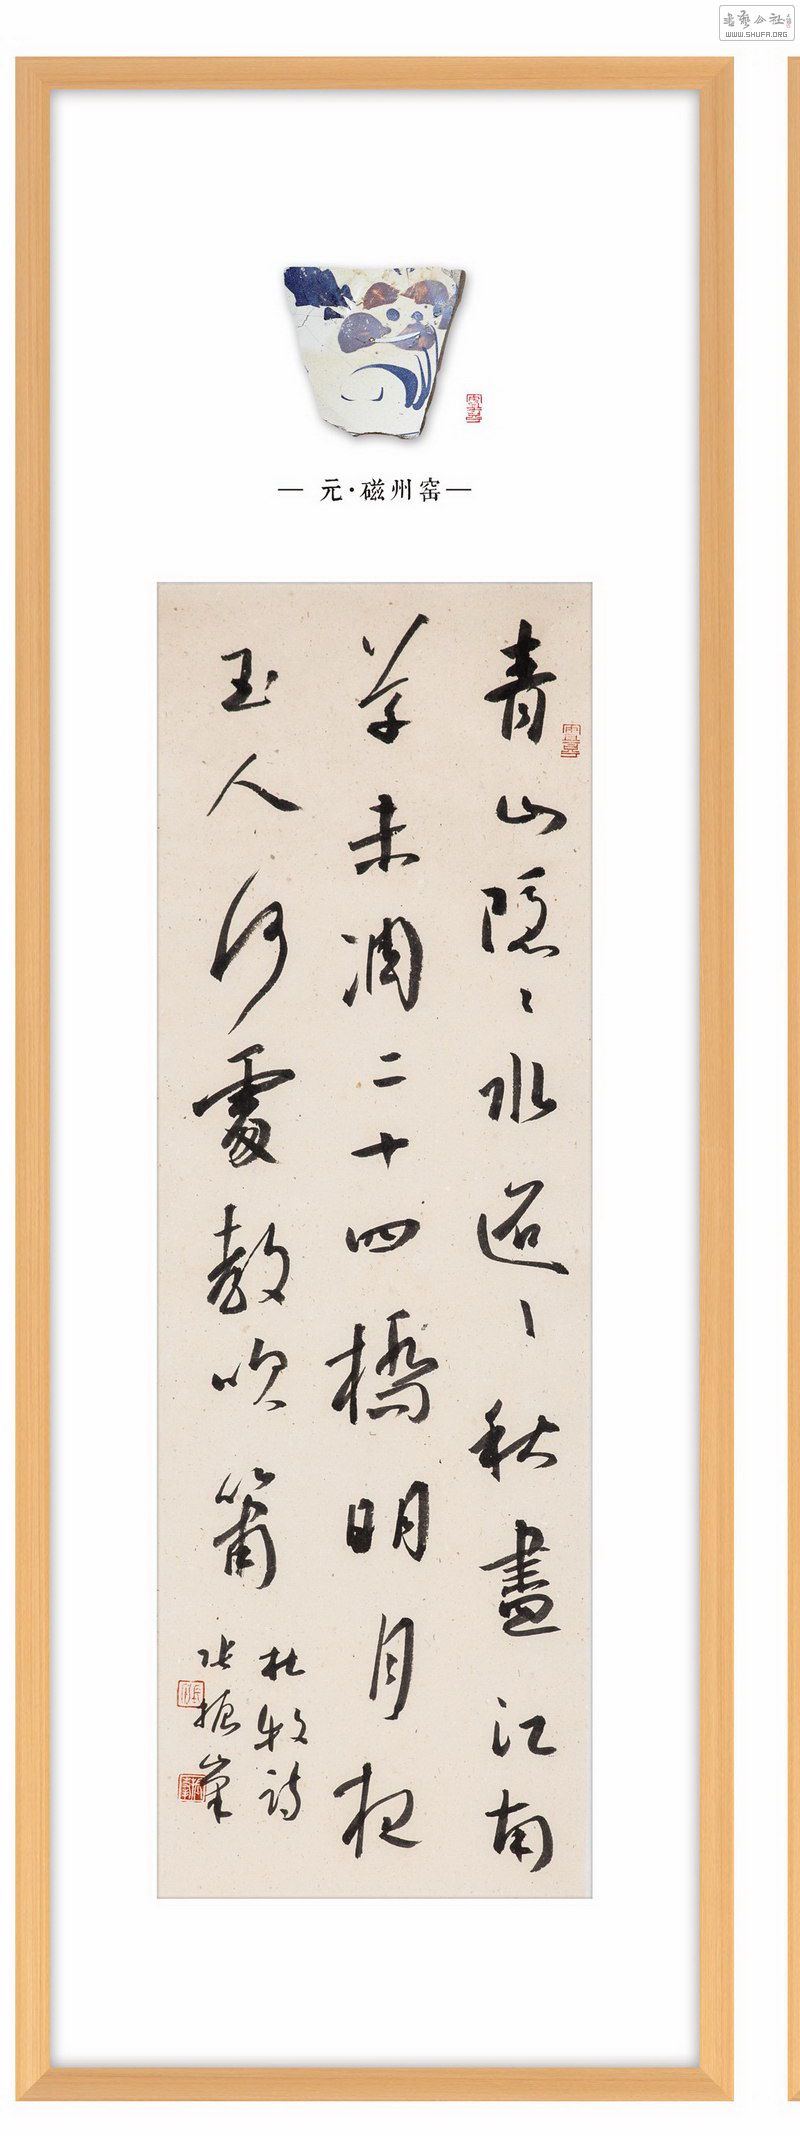 書藝公社
WWW.SHUFA.ORG
— 元·磁州窑 —
青山隐〻水迢〻秋盡江南
草未凋二十四橋明月夜
玉人何處教吹箫
杜牧诗
张振